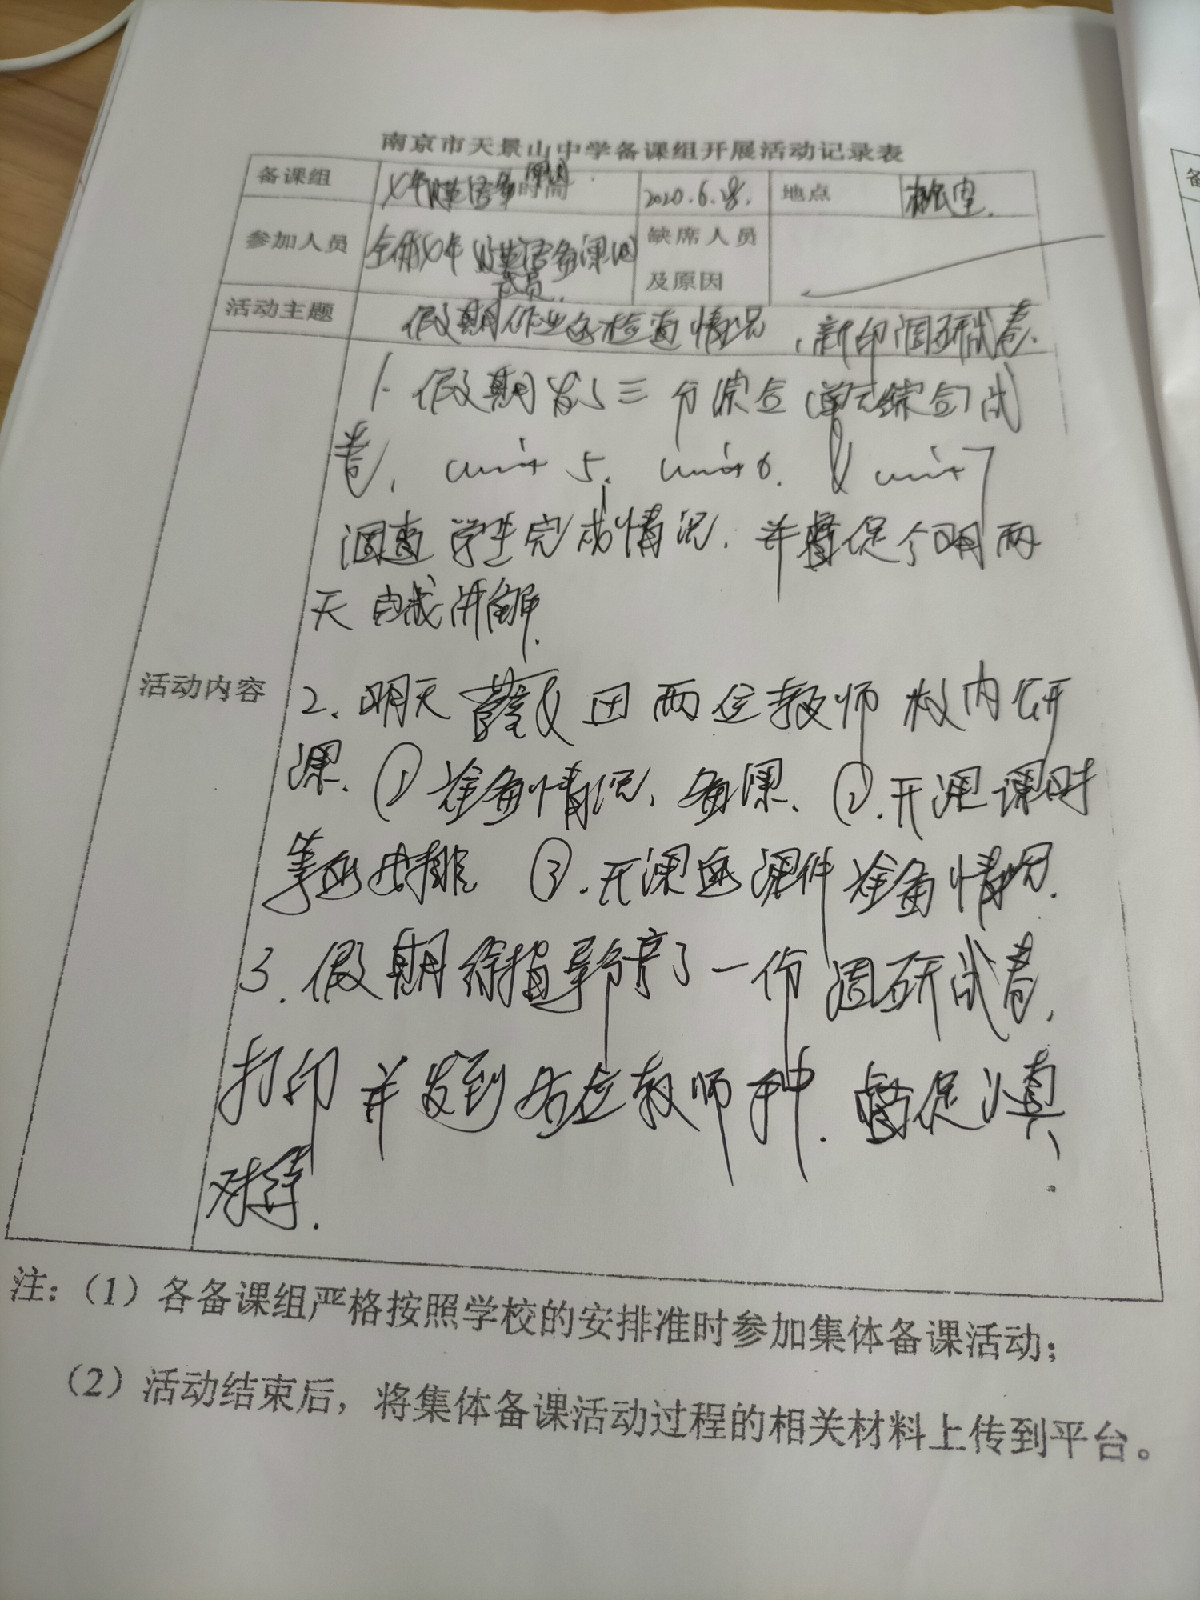 南京市天景山中学备课组开展活动记录表
备课组 七年级英语 时间 2020.6.28. 地点
参加人员 全体七年级英语备课组成员 缺席人员及原因
活动主题 假期作业检查情况，新印调研试卷.
活动内容
1. 假期发了三份综合（单元综合）试
卷， unit 5. unit 6. & unit 7
调查学生完成情况. 并督促今明两
天完成讲解.
2. 明天 两位教师校内公开
课. ① 准备情况、备课、 ②. 开课课时
等安排 ③. 开课课件准备情况.
3. 假期 了一份调研试卷,
打印并发到各位教师手中. 督促认真
对待.
注：（1）各备课组严格按照学校的安排准时参加集体备课活动；
（2）活动结束后，将集体备课活动过程的相关材料上传到平台。